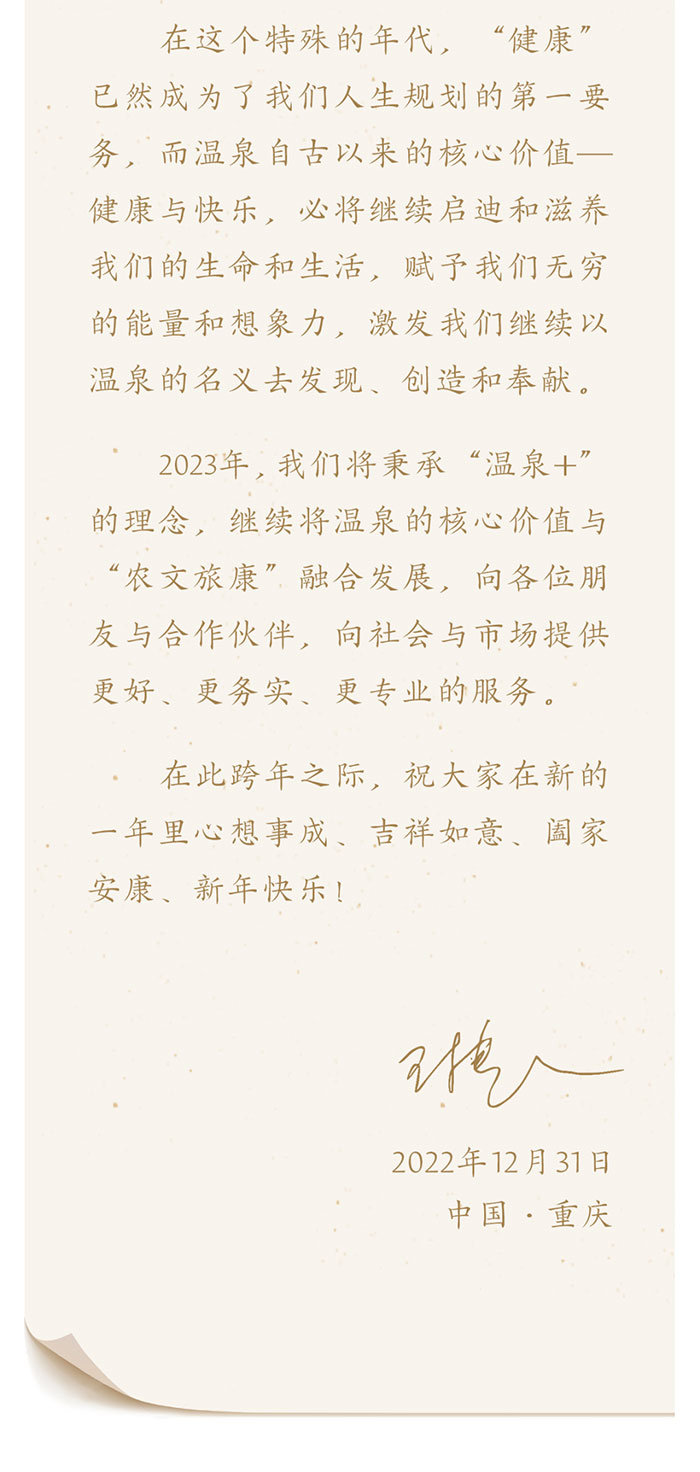 在这个特殊的年代，“健康”
已然成为了我们人生规划的第一要
务，而温泉自古以来的核心价值—
健康与快乐，必将继续启迪和滋养
我们的生命和生活，赋予我们无穷
的能量和想象力，激发我们继续以
温泉的名义去发现、创造和奉献。
2023年，我们将秉承“温泉+”
的理念，继续将温泉的核心价值与
“农文旅康”融合发展，向各位朋
友与合作伙伴，向社会与市场提供
更好、更务实、更专业的服务。
在此跨年之际，祝大家在新的
一年里心想事成、吉祥如意、阖家
安康、新年快乐！
2022年12月31日
中国·重庆